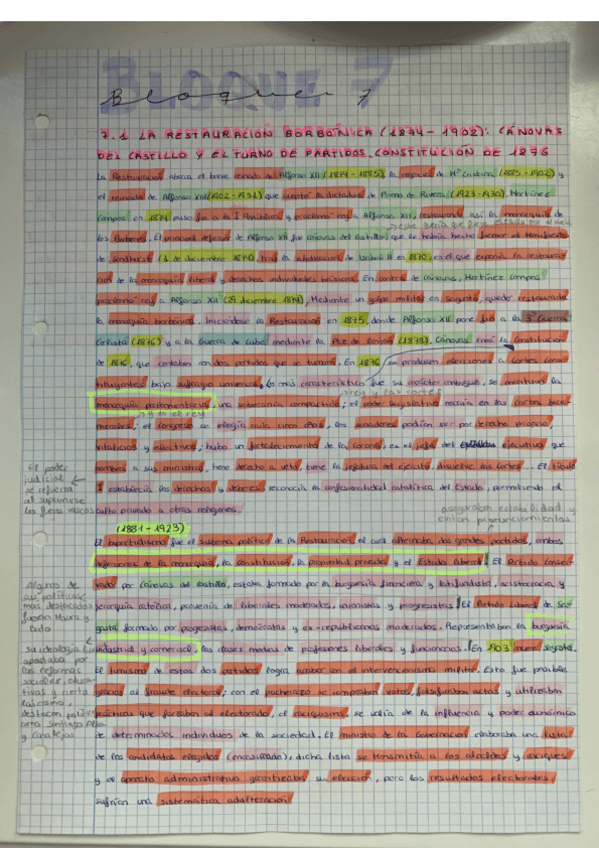 BLOQUE 7
Bloque 7
7.1 LA RESTAURACIÓN BORBÓNICA (1874-1902): CÁNOVAS
DEL CASTILLO Y EL TURNO DE PARTIDOS. CONSTITUCIÓN DE 1876
La Restauración abarca el breve reinado de Alfonso XII (1874-1885), la regencia de Mª Cristina (1885-1902) y
el reinado de Alfonso XIII (1902-1931) que aceptó la dictadura de Primo de Rivera (1923-1930). Martínez
Campos en 1874 puso fin a la I República y proclamó rey a Alfonso XII, restaurando así la monarquía de
los Borbones. El principal defensor de Alfonso XII fue Cánovas del Castillo, que le había hecho firmar el Manifiesto
de Sandhurst (1 de diciembre 1874) tras la abdicación de Isabel II en 1870, en el que exponía la restauración
de la monarquía liberal y derechos individuales básicos. En contra de Cánovas, Martínez Campos
proclamó rey a Alfonso XII (29 diciembre 1874). Mediante un golpe militar en Sagunto, quedó restaurada
la monarquía borbónica. Iniciándose la Restauración en 1875, donde Alfonso XII pone fin a la 3ª Guerra
Carlista (1876) y a la Guerra de Cuba mediante la Paz de Zanjón (1878). Cánovas creó la Constitución
de 1876, que contaban con dos partidos que se turnan. En 1876 se producen elecciones a Cortes Cons-
tituyentes bajo sufragio universal, lo más característico fue su carácter ambiguo, se mantuvo la
rey y las cortes
monarquía parlamentaria, una soberanía compartida; el poder legislativo recaía en las Cortes bica-
y en el rey
merales; el congreso se elegía cada cinco años, los senadores podían ser por derecho propio,
vitalicios y electivos; hubo un fortalecimiento de la Corona, es el jefe del ejecutivo que
nombra a sus ministros, tiene derecho a veto, tiene la jefatura del ejército, disuelve las Cortes... El título
I establecía los derechos y deberes, reconocía la confesionalidad católica del Estado, permitiendo el
culto privado a otras religiones.
El poder
judicial
se refuerza
al suprimirse
los fueros vascos
aseguraban estabilidad y
evitan pronunciamientos
(1881-1923)
El bipartidismo fue el sistema político de la Restauración el cual alternaba dos grandes partidos, ambos
defensores de la monarquía, la constitución, la propiedad privada y el Estado liberal. El Partido Conser-
vador por Cánovas del Castillo, estaba formado por la burguesía financiera y latifundista, aristocracia y
jerarquía católica, provenía de liberales moderados, unionistas y progresistas. El Partido Liberal de Sa-
gasta formado por progresistas, demócratas y ex-republicanos moderados. Representaban la burguesía
industrial y comercial, las clases medias de profesiones liberales y funcionarios. En 1903 muere Sagasta.
El turnismo de estos dos partidos logra acabar con el intervencionismo militar. Esto fue posible
gracias al fraude electoral; con el pucherazo se compraban votos, falsificaban actas y utilizaban
prácticas que forzaban al electorado, el caciquismo, se valía de la influencia y poder económico
de determinados individuos de la sociedad. El ministro de la Gobernación elaboraba una lista
de los candidatos elegidos (encasillado), dicha lista se transmitía a los alcaldes y caciques
y el aparato administrativo garantizaba su elección, pero los resultados electorales
sufrían una sistemática adulteración.
Algunos de
sus políticos
más destacados
fueron Maura y
Dato
su ideología
adaptaba por
las reformas
sociales, educa-
tivas y cierto
laicismo,
destacan políticos
como Santiago Alba
y Canalejas